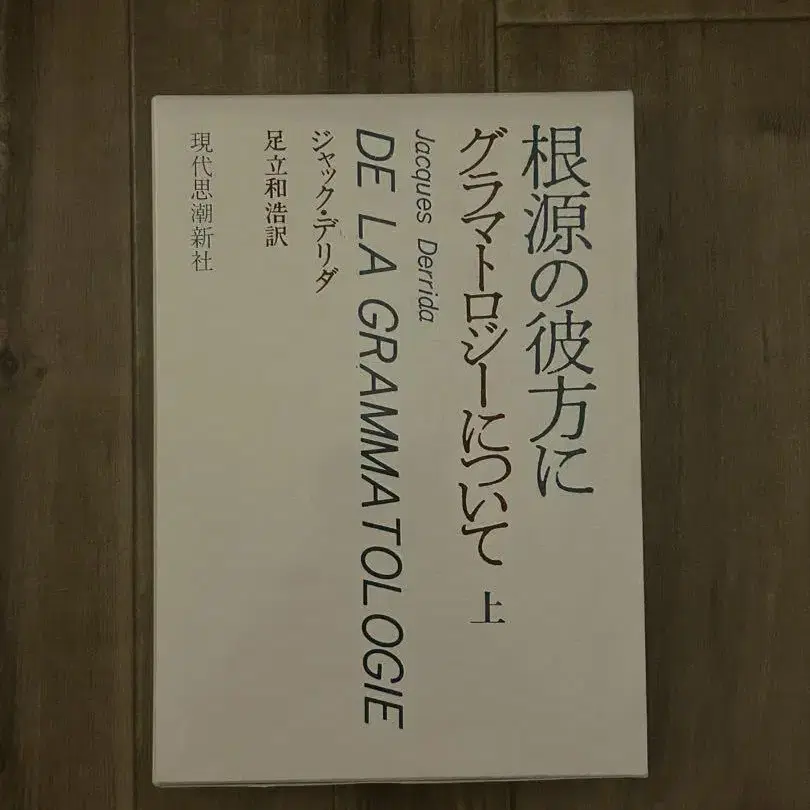 根源の彼方に
グラマトロジーについて 上
Jacques Derrida
DE LA GRAMMATOLOGIE
ジャック・デリダ
足立和浩訳
現代思潮新社